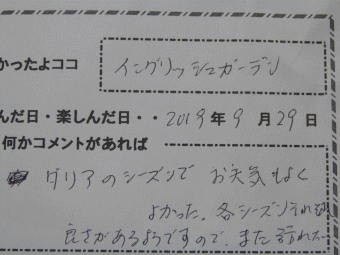 かったよココ イングリッシュガーデン
んだ日・楽しんだ日・・2019年9月29日
何かコメントがあれば
ダリアのシーズンで お天気もよく
よかった。各シーズンそれぞれ
良さがあるようですので、また訪れた